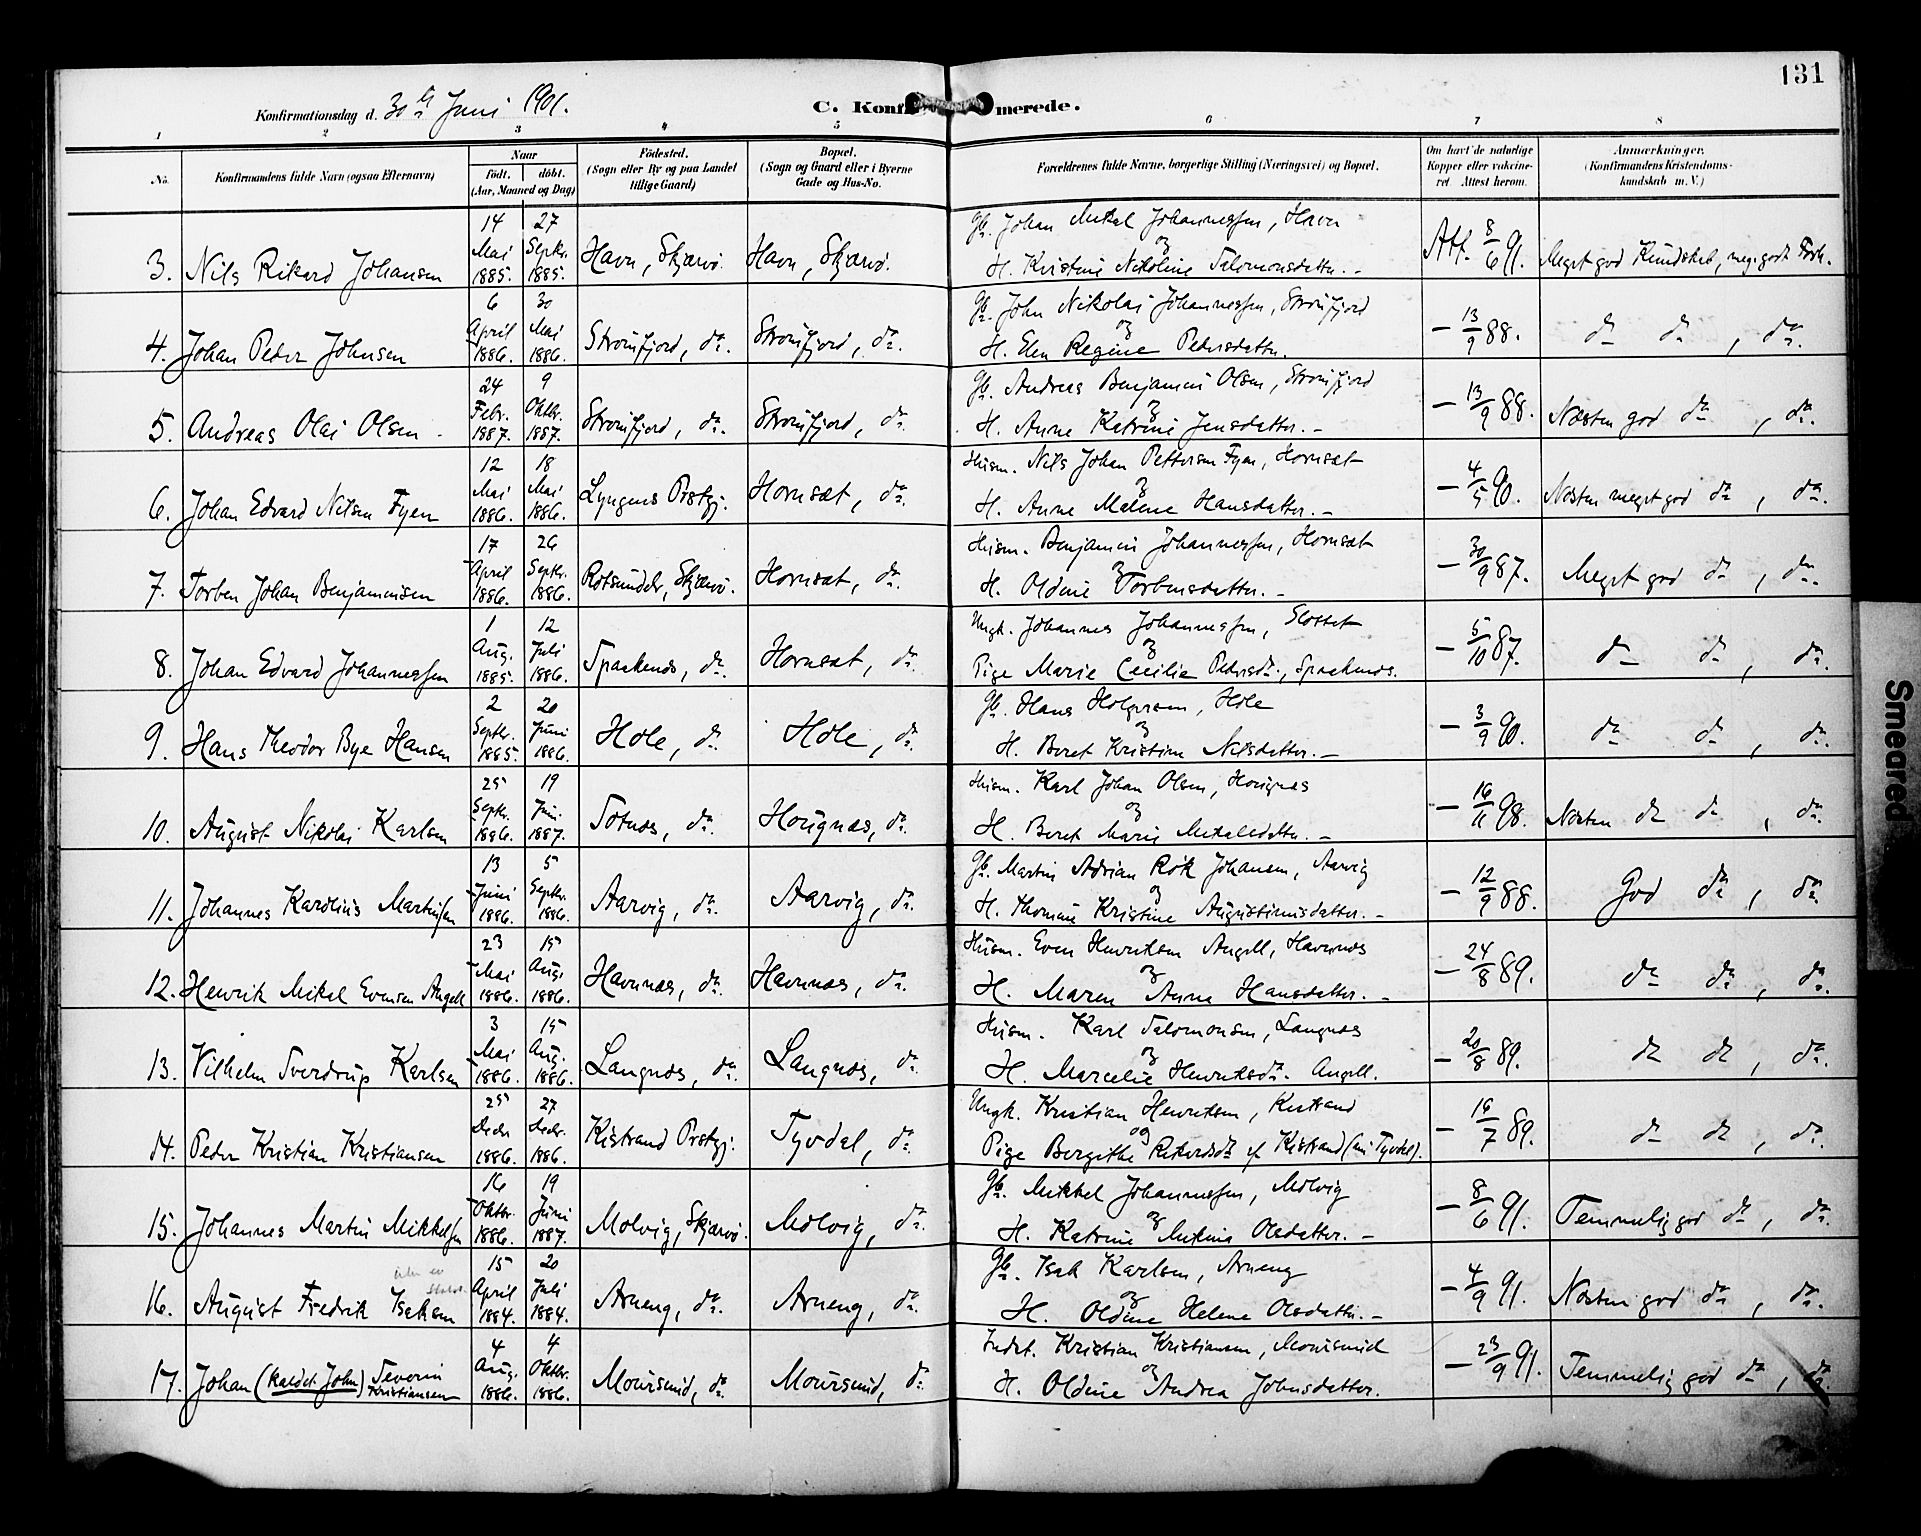 131
Konfirmationsdag d. 30te Juni 1901.
C. Konf merede.
1 2 3 4 5 6 7 8
No. Konfirmandens fulde Navn (ogsaa Efternavn) Naar født. døbt. (Aar, Maaned og Dag) Fødested. (Sogn eller By og paa Landet tillige Gaard) Bopæl. (Sogn og Gaard eller i Byerne Gade og Hus-No. Forældrenes fulde Navne, borgerlige Stilling (Næringsvei) og Bopæl. Om havt de naturlige Kopper eller vakcineret Attest herom. Anmærkninger. (Konfirmandens Kristendomskundskab m. V.)
3. Nils Rikard Johansen 14 Mai 1885. 27 Septbr. 1885. Havn, Skjærvø. Havn, Skjærvø. Gb. Johan Mikal Johannessen, Havn
og
H. Kristine Nikoline Salomonsdatter. – Att. 8/6 91. Meget god Kundskab, meg. godt Forh.
4. Johan Peder Johnsen 6 April 1886. 30 Mai 1886. Straumfjord, do. Straumfjord, do. Gb. John Nikolai Johannessen, Straumfjord
og
H. Elen Regine Pedersdatter. – 13/9 88. do do, do.
5. Andreas Olai Olsen 24 Febr. 1887. 9 Oktbr. 1887. Straumfjord, do. Straumfjord, do. Gb. Andreas Benjamin Olsen, Straumfjord
og
H. Anne Katrine Jensdatter. – – 13/9 88. Næsten god do, do.
6. Johan Edvard Nilsen Fyen 12 Mai 1886. 18 Mai 1886. Lyngens Prstgj. Hornsæt, do. Husm. Nils Johan Pettersen Fyen, Hornsæt
og
H. Anne Malene Hansdatter. – – 4/5 90. Næsten meget god do, do.
7. Torben Johan Benjaminsen 17 April 1886. 26 Septbr. 1886. Rotsundelv, Skjærvø. Hornsæt, do. Husm. Benjamin Johannessen, Hornsæt
og
H. Oldine Torbensdatter. – – 30/9 87. Meget god do, do.
8. Johan Edvard Johannessen 1 Aug. 1885. 12 Juli 1886. Spaakenes, do. Hornsæt, do. Ungk. Johannes Johannessen, Slottet
og
Pige Marie Cecilie Pedersdr., Spaakenes. – 5/10 87. do do, do.
9. Hans Theodor Bye Hansen 2 Septbr. 1885. 20 Juni 1886. Hole, do. Hole, do. Gb. Hans Holgersen, Hole
og
H. Beret Kristine Nilsdatter. – – 3/9 90. do do, do.
10. August Nikolai Karlsen 25 Septbr. 1886. 19 Juni 1887. Sotnæs, do. Haugnæs, do. Husm. Karl Johan Olsen, Haugnæs
og
H. Beret Marie Mikalsdatter. – – 16/11 98. Næsten do do, do.
11. Johannes Karolius Martinsen 13 Juni 1886. 5 Septbr. 1886. Aarvig, do. Aarvig, do. Gb. Martin Adrian Røk Johansen, Aarvig
og
H. Thomine Kristine Augustinusdatter. – – 12/9 88. God do, do.
12. Henrik Mikal Evensen Angell 23 Mai 1886. 15 Aug. 1886. Havnnæs, do. Havnnæs, do. Husm. Even Henriksen Angell, Havnnæs
og
H. Maren Anna Hansdatter. – – 24/8 89. do do, do.
13. Vilhelm Sverdrup Karlsen 3 Mai 1886. 15 Aug. 1886. Langnæs, do. Langnæs, do. Husm. Karl Salomonsen, Langnæs
og
H. Marcelie Henriksdr. Angell. – 20/8 89. do do, do.
14. Peder Kristian Kristiansen 25 Decbr. 1886. 27 Decbr. 1886. Kistrand Prstgj. Tyvdal, do. Ungk. Kristian Henriksen, Kistrand
og
Pige Bergithe Rikardsdr. af Kistrand (nu Tyvdal). – 16/7 89. do do, do.
15. Johannes Martin Mikkelsen 16 Oktbr. 1886. 19 Juni 1887. Molvig, Skjærvø. Molvig, do. Gb. Mikkel Johannessen, Molvig
og
H. Katrine Mikina Olsdatter. – – 8/6 91. Temmelig god do, do.
16. August Fredrik Isaksen 15 April 1884. 20 Juli 1884. Arneng, do. Arneng, do. Gb. Isak Karlsen, Arneng
og
H. Oldine Helene Olsdatter. – – 4/9 91. Næsten god do, do.
17. Johan (kaldet John) Severin Kristiansen 4 Aug. 1886. 4 Oktbr. 1886. Maursund, do. Maursund, do. Indst. Kristian Kristiansen, Maursund
og
H. Oldine Andrea Johnsdatter. – 23/9 91. Temmelig god do, do.
Smeared